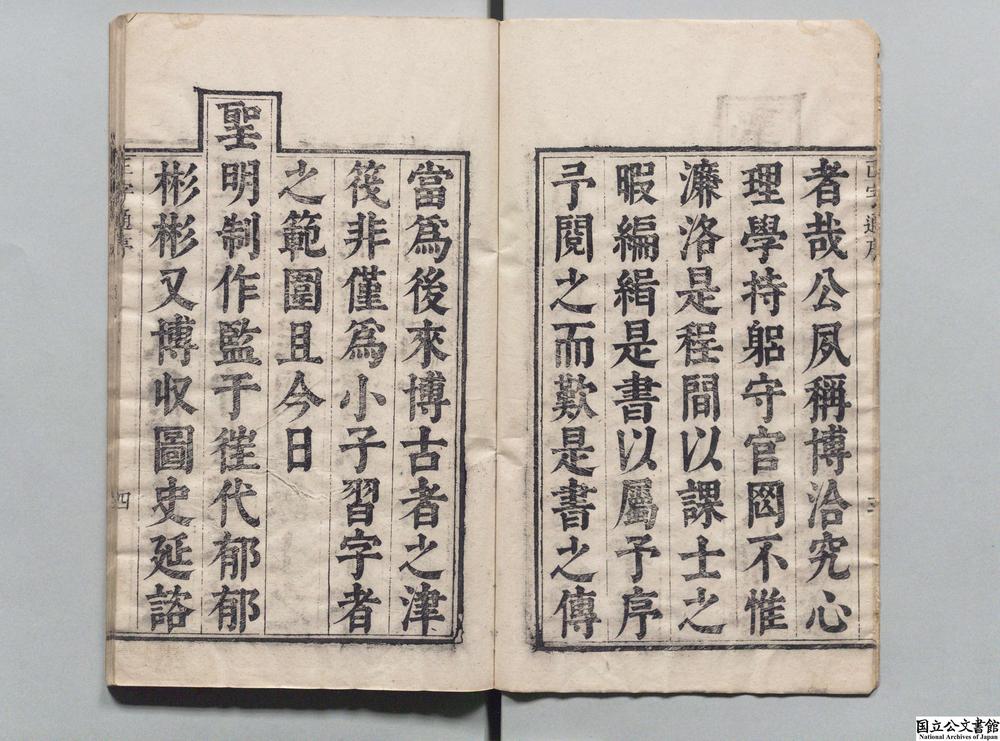 者哉公夙稱博洽究心
理學持躬守官罔不惟
濂洛是程間以課士之
暇編緝是書以屬予序
予閱之而歎是書之傳
當爲後來博古者之津
筏非僅爲小子習字者
之範圍且今日
聖明制作監于徃代郁郁
彬彬又博収圖史延諮
正字通序
四
国立公文書館
National Archives of Japan